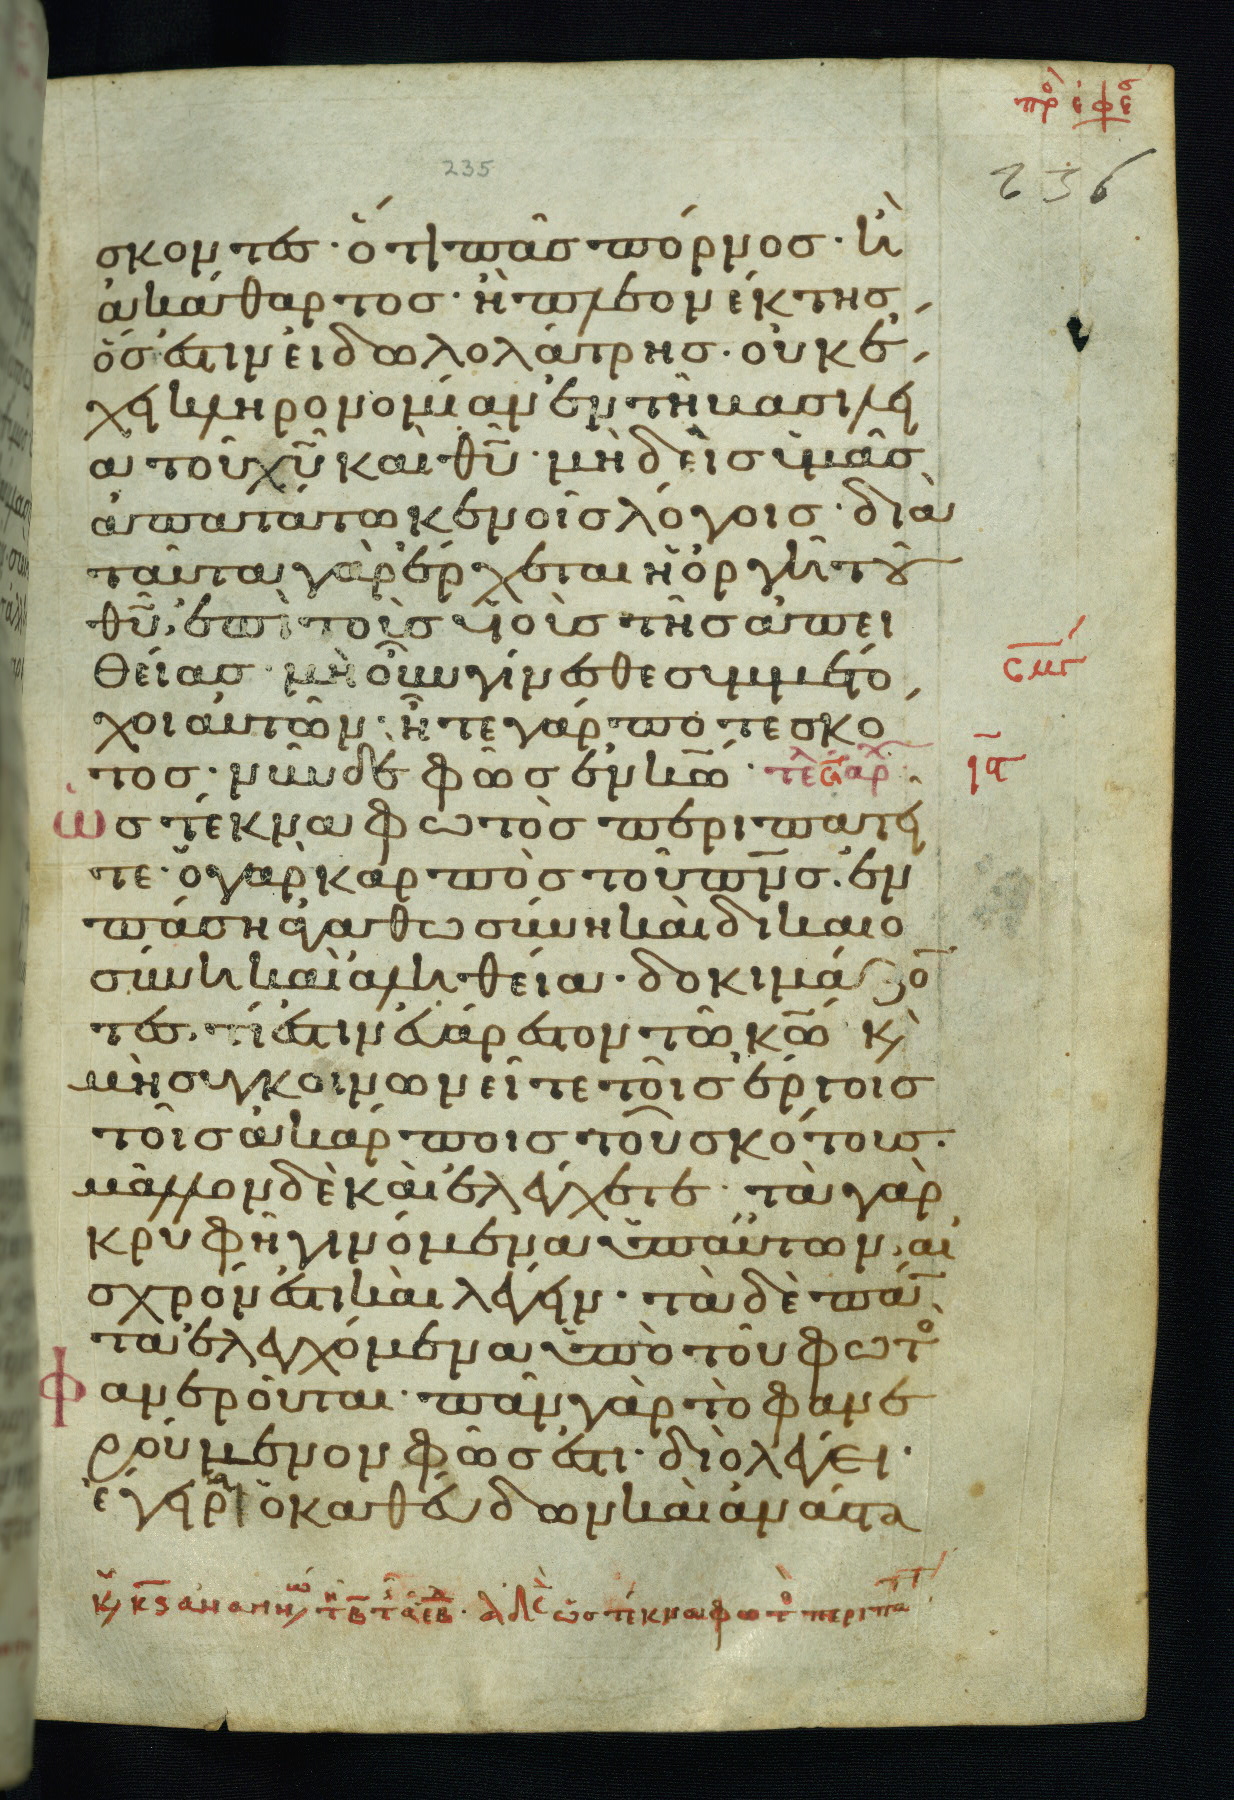 πρ ἐφε
235
236
σκοντες· ὅτι πᾶσ πόρνοσ· κὶ
ἀκάθαρτοσ· ἢ πλεονέκτησ,
ὅσ ἐστιν εἰδωλολάτρησ· οὐκ ἔ,
χει κληρονομίαν ἐν τῆ βασιλεί
α τοῦ χυ̅ καὶ θυ̅· μηδεὶσ ὑμᾶσ
ἀπατάτω κενοῖσ λόγοισ· διὰ
ταῦτα γὰρ ἔρχεται ἡ ὀργὴ τοῦ
θυ̅, ἐπὶ τοὺσ υἱοὺσ τῆσ ἀπει
θείασ· μὴ οὖν γίνεσθε συμμέτο,
χοι αὐτῶν· ἦτε γάρ ποτε σκό
τοσ· νῦν δὲ φῶσ ἐν κω̅·
ὡσ τέκνα φωτὸσ περιπατεῖ
τε· ὁ γὰρ καρπὸσ τοῦ πνσ̅· ἐν
πάση ἀγαθωσύνη καὶ δικαιο
σύνη καὶ ἀληθεία· δοκιμάζο̅
τεσ, τί ἐστιν εὐάρεστον τῶ κω̅ κὶ
μὴ συγκοινωνεῖτε τοῖσ ἔργοισ
τοῖσ ἀκάρποισ τοῦ σκότουσ·
μᾶλλον δὲ καὶ ἐλέγχετε· τὰ γὰρ
κρυφῆ γινόμενα ὑπ' αὐτῶν, αἰ
σχρόν ἐστι καὶ λέγειν· τὰ δὲ πά̅
τα ἐλεγχόμενα ὑπὸ τοῦ φωτο
φανεροῦται· πᾶν γὰρ τὸ φανε
ρούμενον φῶσ ἐστι· διὸ λέγει·
ἔγειραι ὁ καθεύδων καὶ ἀνάστα
ἀδε ὡσ τέκνα φωτο περιπα